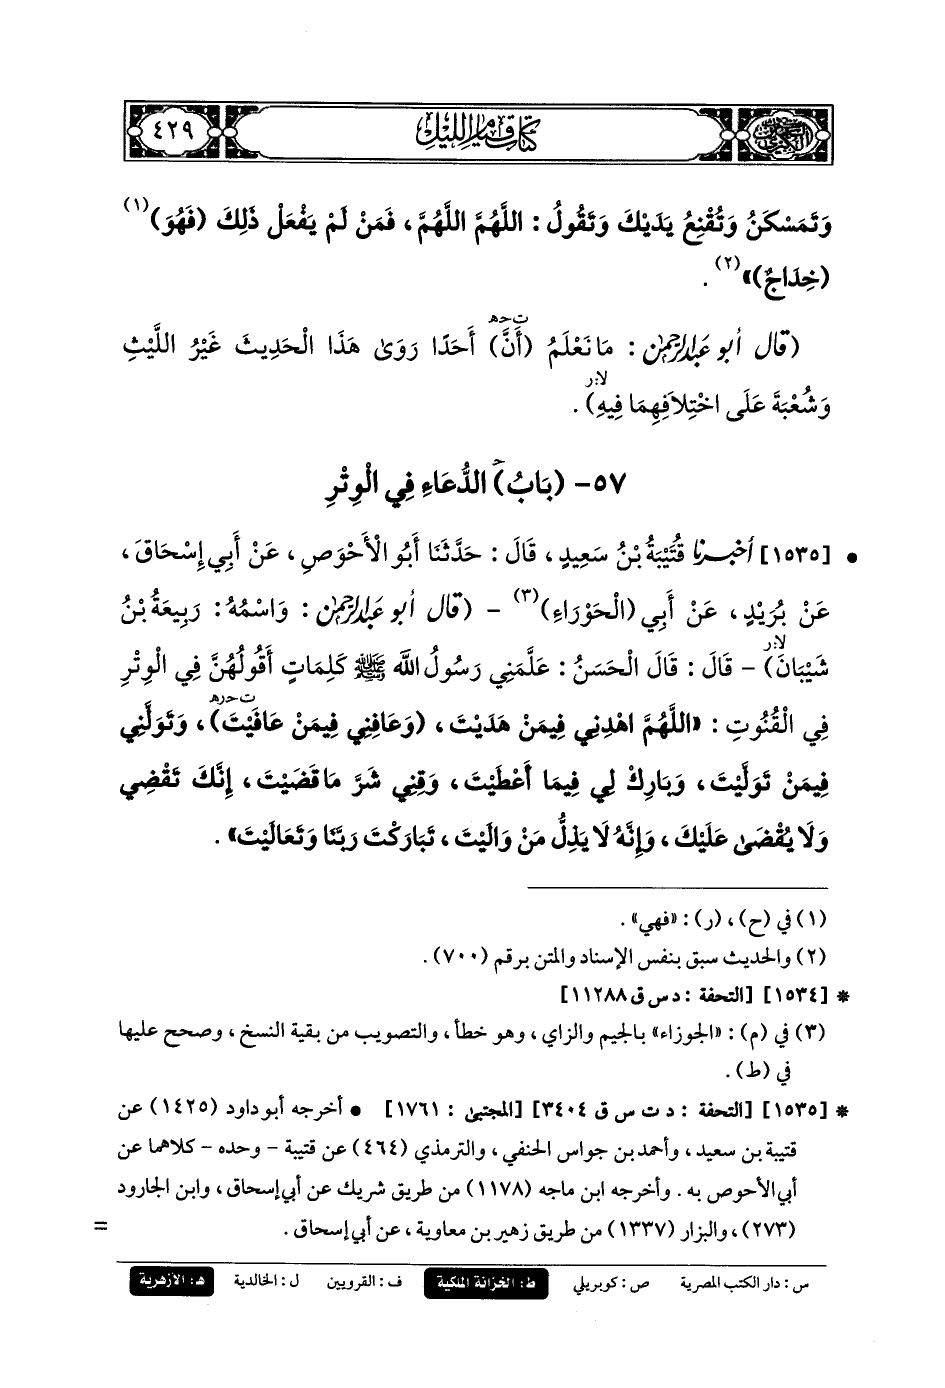 السنن الكبرى
كتاب قيام الليل
٤٢٩
وَتَمَسْكَنُ وَتُقْنِعُ يَدَيْكَ وَتَقُولُ : اللَّهُمَّ اللَّهُمَّ ، فَمَنْ لَمْ يَفْعَلْ ذَلِكَ (فَهُوَ)(١)
(خِدَاجٌ)»(٢) .
ت ح ه
(قال أبو عبدالرحمن : مَا نَعْلَمُ (أَنَّ) أَحَدًا رَوَىٰ هَذَا الْحَدِيثَ غَيْرُ اللَّيْثِ
لا : ر
وَشُعْبَةَ عَلَى اخْتِلَافِهِمَا فِيهِ) .
ح
٥٧- (بَابُ) الدُّعَاءِ فِي الْوِتْرِ
• [١٥٣٥] أخبرنا قُتَيْبَةُ بْنُ سَعِيدٍ ، قَالَ : حَدَّثَنَا أَبُو الْأَحْوَصِ ، عَنْ أَبِي إِسْحَاقَ ،
عَنْ بُرَيْدٍ ، عَنْ أَبِي (الْحَوْرَاءِ)(٣) - (قال أبو عبدالرحمن : وَاسْمُهُ : رَبِيعَةُ بْنُ
لا : ر
شَيْبَانَ) - قَالَ : قَالَ الْحَسَنُ : عَلَّمَنِي رَسُولُ اللَّه ﷺ كَلِمَاتٍ أَقُولُهُنَّ فِي الْوِتْرِ
ت ح ر ه
فِي الْقُنُوتِ : «اللَّهُمَّ اهْدِنِي فِيمَنْ هَدَيْتَ ، (وَعَافِنِي فِيمَنْ عَافَيْتَ) ، وَتَوَلَّنِي
فِيمَنْ تَوَلَّيْتَ ، وَبَارِكْ لِي فِيمَا أَعْطَيْتَ ، وَقِنِي شَرَّ مَا قَضَيْتَ ، إِنَّكَ تَقْضِي
وَلَا يُقْضَىٰ عَلَيْكَ ، وَإِنَّهُ لَا يَذِلُّ مَنْ وَالَيْتَ ، تَبَارَكْتَ رَبَّنَا وَتَعَالَيْتَ» .
(١) في (ح) ، (ر) : «فهي» .
(٢) والحديث سبق بنفس الإسناد والمتن برقم (٧٠٠) .
* [١٥٣٤] [التحفة : د س ق ١١٢٨٨]
(٣) في (م) : «الجوزاء» بالجيم والزاي ، وهو خطأ ، والتصويب من بقية النسخ ، وصحح عليها
في (ط) .
* [١٥٣٥] [التحفة : د ت س ق ٣٤٠٤] [المجتبى : ١٧٦١] • أخرجه أبو داود (١٤٢٥) عن
قتيبة بن سعيد ، وأحمد بن جواس الحنفي ، والترمذي (٤٦٤) عن قتيبة - وحده - كلاهما عن
أبي الأحوص به . وأخرجه ابن ماجه (١١٧٨) من طريق شريك عن أبي إسحاق ، وابن الجارود
(٢٧٣) ، والبزار (١٣٣٧) من طريق زهير بن معاوية ، عن أبي إسحاق . =
س : دار الكتب المصرية ص : كوبريلي ط : الخزانة الملكية ف : القرويين ل : الخالدية هـ : الأزهرية